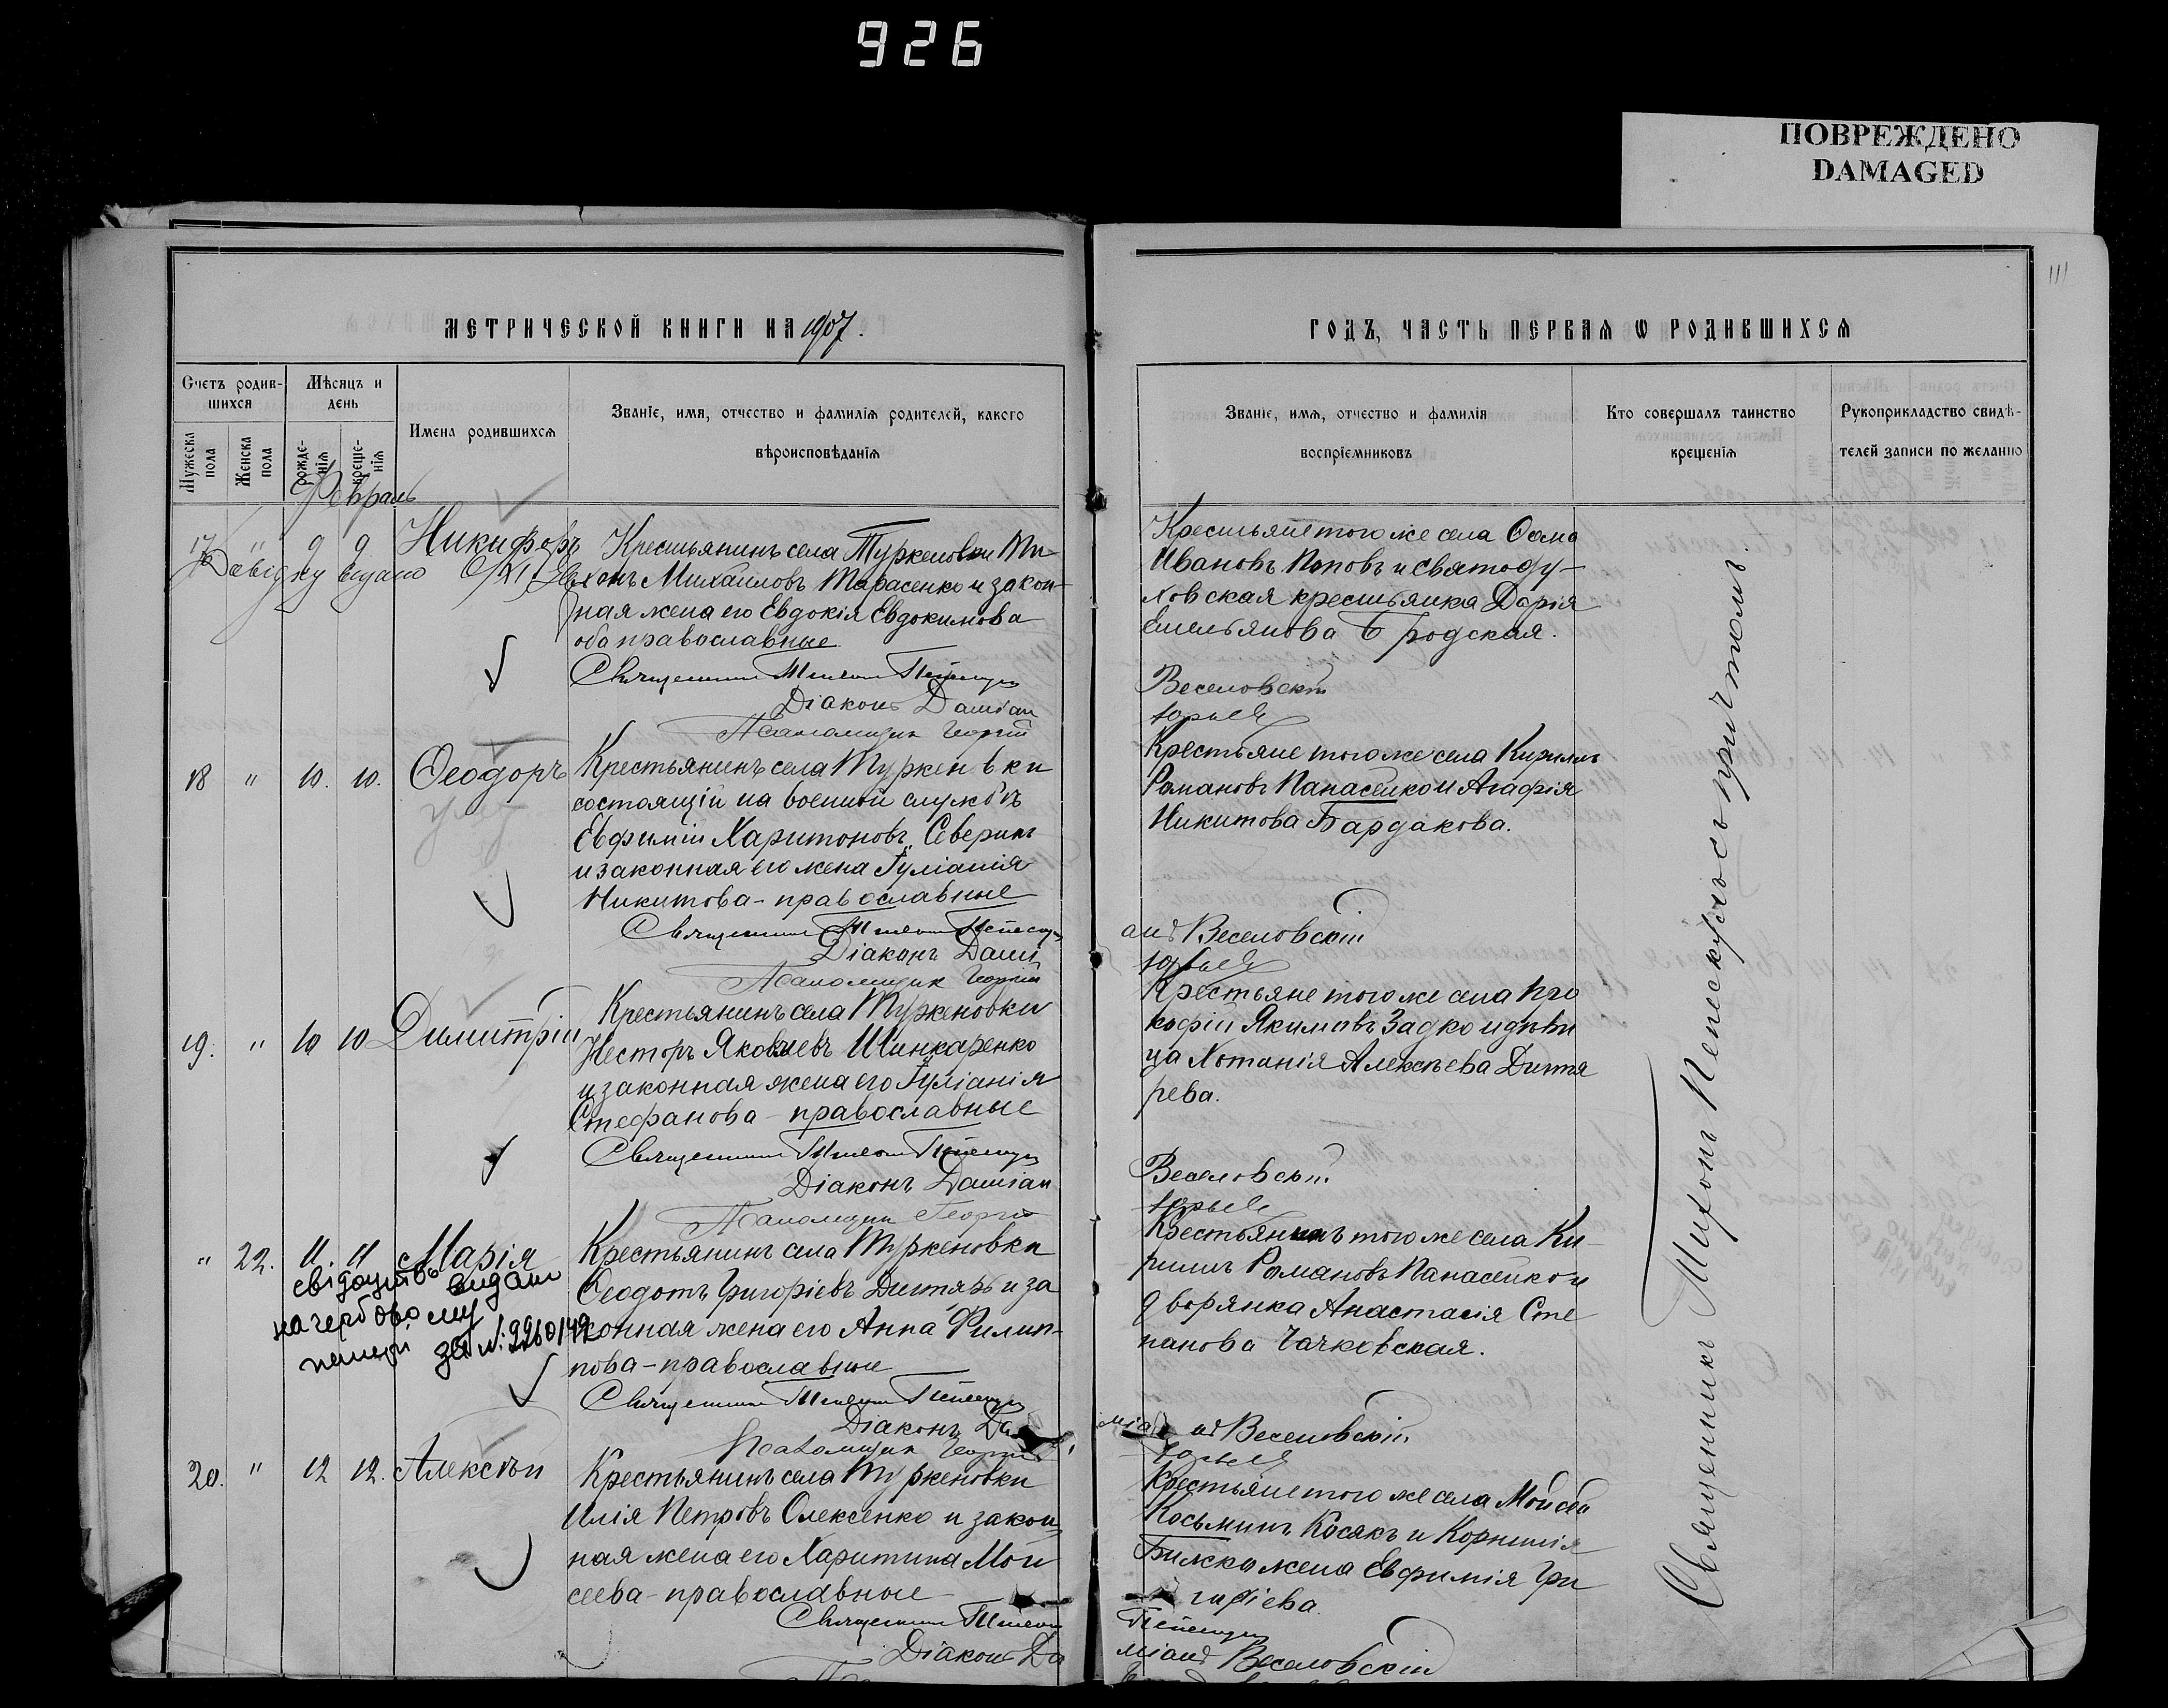 926
ПОВРЕЖДЕНО
DAMAGED
111
МЕТРИЧЕСКОЙ КНИГИ НА 1907.
ГОДЪ, ЧАСТЬ ПЕРВАЯ Ѡ РОДИВШИХСЯ
Счетъ родив-
шихся
Мужеска пола
Женска пола
Мѣсяцъ и
день
рожде-
нія
креще-
нія
Имена родившихся
Званіе, имя, отчество и фамилія родителей, какого
вѣроисповѣданія
Званіе, имя, отчество и фамилія
воспріемниковъ
Кто совершалъ таинство
крещенія
Рукоприкладство свидѣ-
телей записи по желанію
Февраль
17 " 9 9 Никифоръ
Довідку видано
Крестьянинъ села Туркеновки Ти-
хонъ Михаиловъ Тарасенко и закон-
ная жена его Евдокія Евдокимова
оба православные
Священник
Діаконъ Даміан
Псаломщик Георгій
Крестьяне того же села Ѳома
Ивановъ Поповъ и Святоду-
ховская крестьянка Дарія
Емельянова Бродская.
Веселовскій
18 " 10. 10. Ѳеодоръ
Крестьянинъ села Туркеновки
состоящій на военной службѣ
Евфимій Харитоновъ Северинъ
и законная его жена Іуліанія
Никитова - православные
Священник
Діаконъ Дамі
Псаломщик Георгій
Крестьяне того же села Кириллъ
Романовъ Панасенко и Агафія
Никитова Бардакова.
анъ Веселовскій
19. " 10 10 Димитрій
Крестьянинъ села Туркеновки
Несторъ Яковлевъ Шинкаренко
и законная жена его Іуліанія
Стефанова - православные
Священник
Діаконъ Даміан
Псаломщик Георгій
Крестьяне того же села Про
кофій Якимовъ Задко и дѣви
ца Хотинія Алексѣева Дигтя
рева.
Веселовскій.
" 22. 11. 11 Марія
свідоцтво видано
на гербовому
папері за №: 2260149
Крестьянинъ села Туркеновки
Ѳеодотъ Григоріевъ Дигтярь и за
конная жена его Анна Филип-
пова - православные
Священник
Діаконъ Да
Псаломщик Георгій
Крестьянинъ того же села Ки-
риллъ Романовъ Панасенко и
дворянка Анастасія Сте
панова Чачковская.
міанъ Веселовскій.
20. " 12 12. Алексѣй
Крестьянинъ села Туркеновки
Илія Петровъ Олексенко и закон
ная жена его Харитина Мои
сеева - православные
Священник
Діаконъ Да
Крестьяне того же села Мойсей
Косьминъ Косякъ и Корнилія
Бижка жена Евфимія Гри
горіева.
міанъ Веселовскій
Священникъ Тихонъ Пепескулъ съ причтомъ.